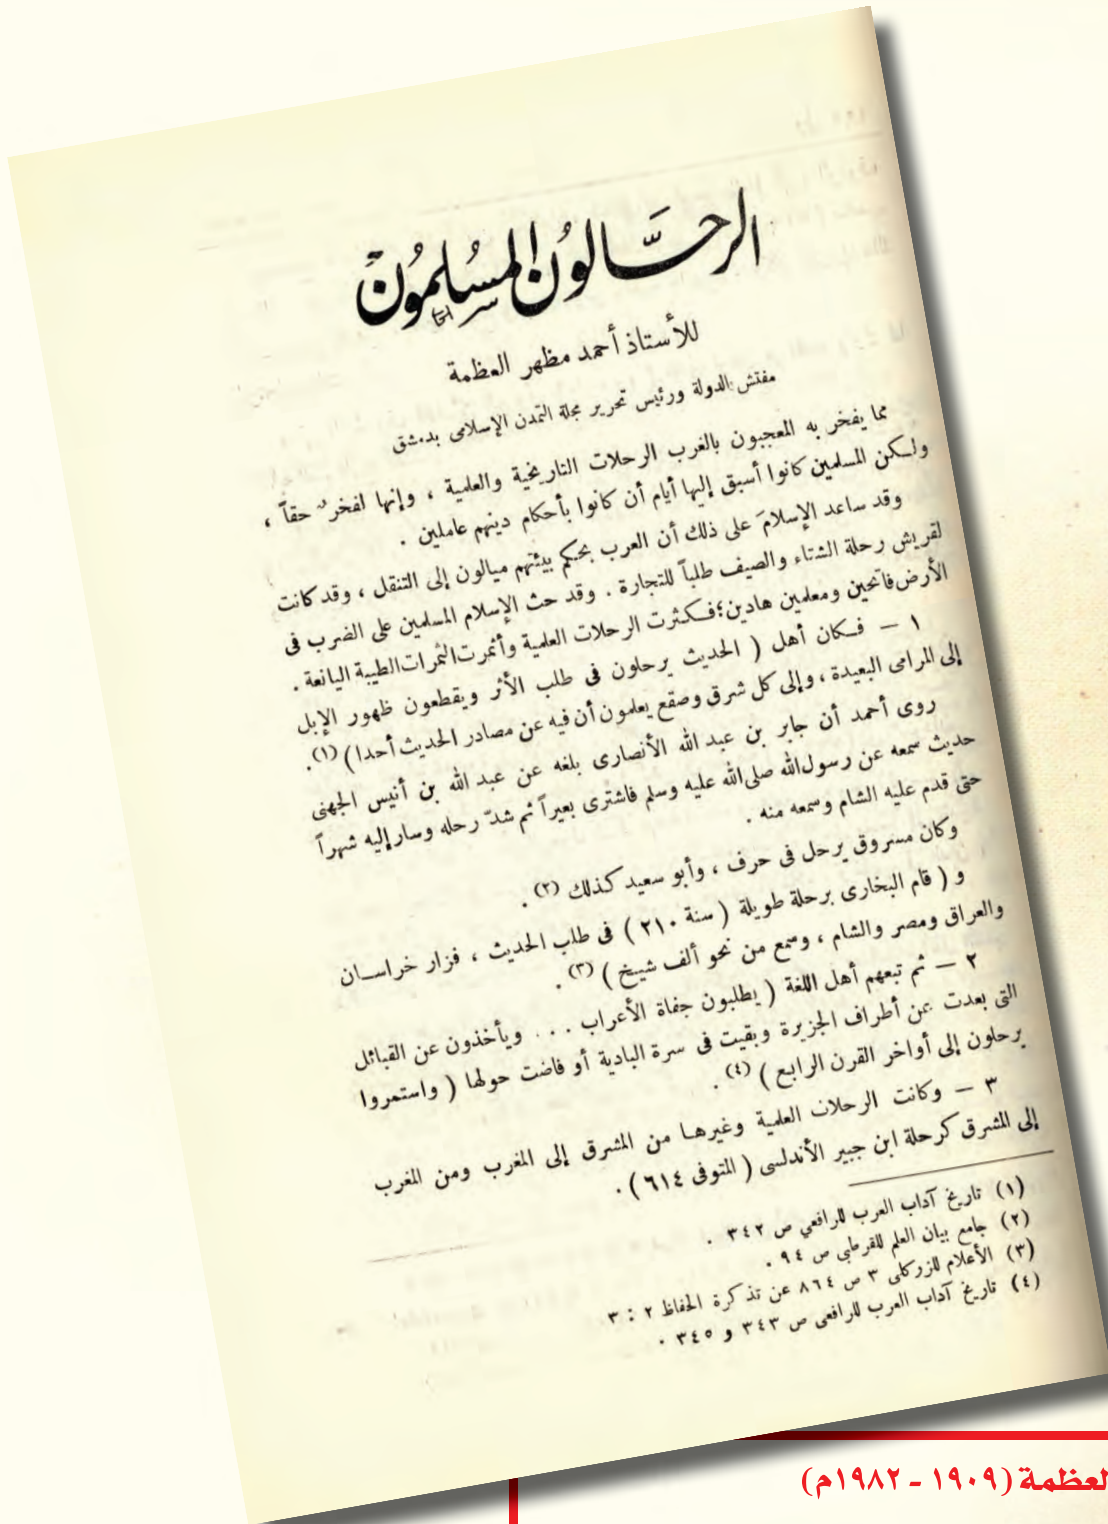 الرحَّالُون المسُلِمُونْ
للأستاذ أحمد مظهر العظمة
مفتش الدولة ورئيس تحرير مجلة التمدن الإسلامى بدمشق
مما يفخر به المعجبون بالغرب الرحلات التاريخية والعلمية ، وإنها لفخرٌ حقاً ،
ولكن المسلمين كانوا أسبق إليها أيام أن كانوا بأحكام دينهم عاملين .
وقد ساعد الإسلامَ على ذلك أن العرب بحكم بيئتهم ميالون إلى التنقل ، وقد كانت
لقريش رحلة الشتاء والصيف طلباً للتجارة . وقد حث الإسلام المسلمين على الضرب فى
الأرض فاتحين ومعلمين هادين؛ فكثرت الرحلات العلمية وأثمرت الثمرات الطيبة اليانعة .
١ — فكان أهل ( الحديث يرحلون فى طلب الأثر ويقطعون ظهور الإبل
إلى المرامى البعيدة ، وإلى كل شرق وصقع يعلمون أن فيه عن مصادر الحديث أحدا ) (١).
روى أحمد أن جابر بن عبد الله الأنصارى بلغه عن عبد الله بن أنيس الجهنى
حديث سمعه عن رسول الله صلى الله عليه وسلم فاشترى بعيراً ثم شدّ رحله وسار إليه شهراً
حتى قدم عليه الشام وسمعه منه .
وكان مسروق يرحل فى حرف ، وأبو سعيد كذلك (٢) .
و ( قام البخارى برحلة طويلة ( سنة ٢١٠ ) فى طلب الحديث ، فزار خراسان
والعراق ومصر والشام ، وسمع من نحو ألف شيخ ) (٣) .
٢ — ثم تبعهم أهل اللغة ( يطلبون جفاة الأعراب ... ويأخذون عن القبائل
التى بعدت عن أطراف الجزيرة وبقيت فى سرة البادية أو فاضت حولها ( واستمروا
يرحلون إلى أواخر القرن الرابع ) (٤) .
٣ — وكانت الرحلات العلمية وغيرها من المشرق إلى المغرب ومن المغرب
إلى المشرق كرحلة ابن جبير الأندلسى ( المتوفى ٦١٤ ) .
(١) تاريخ آداب العرب للرافعي ص ٣٤٢ .
(٢) جامع بيان العلم للقرطبى ص ٩٤ .
(٣) الأعلام للزركلى ٣ ص ٨٦٤ عن تذكرة الحفاظ ٢ : ٣
(٤) تاريخ آداب العرب للرافعى ص ٣٤٣ و ٣٤٥ .
لعظمة (١٩٠٩ - ١٩٨٢م)